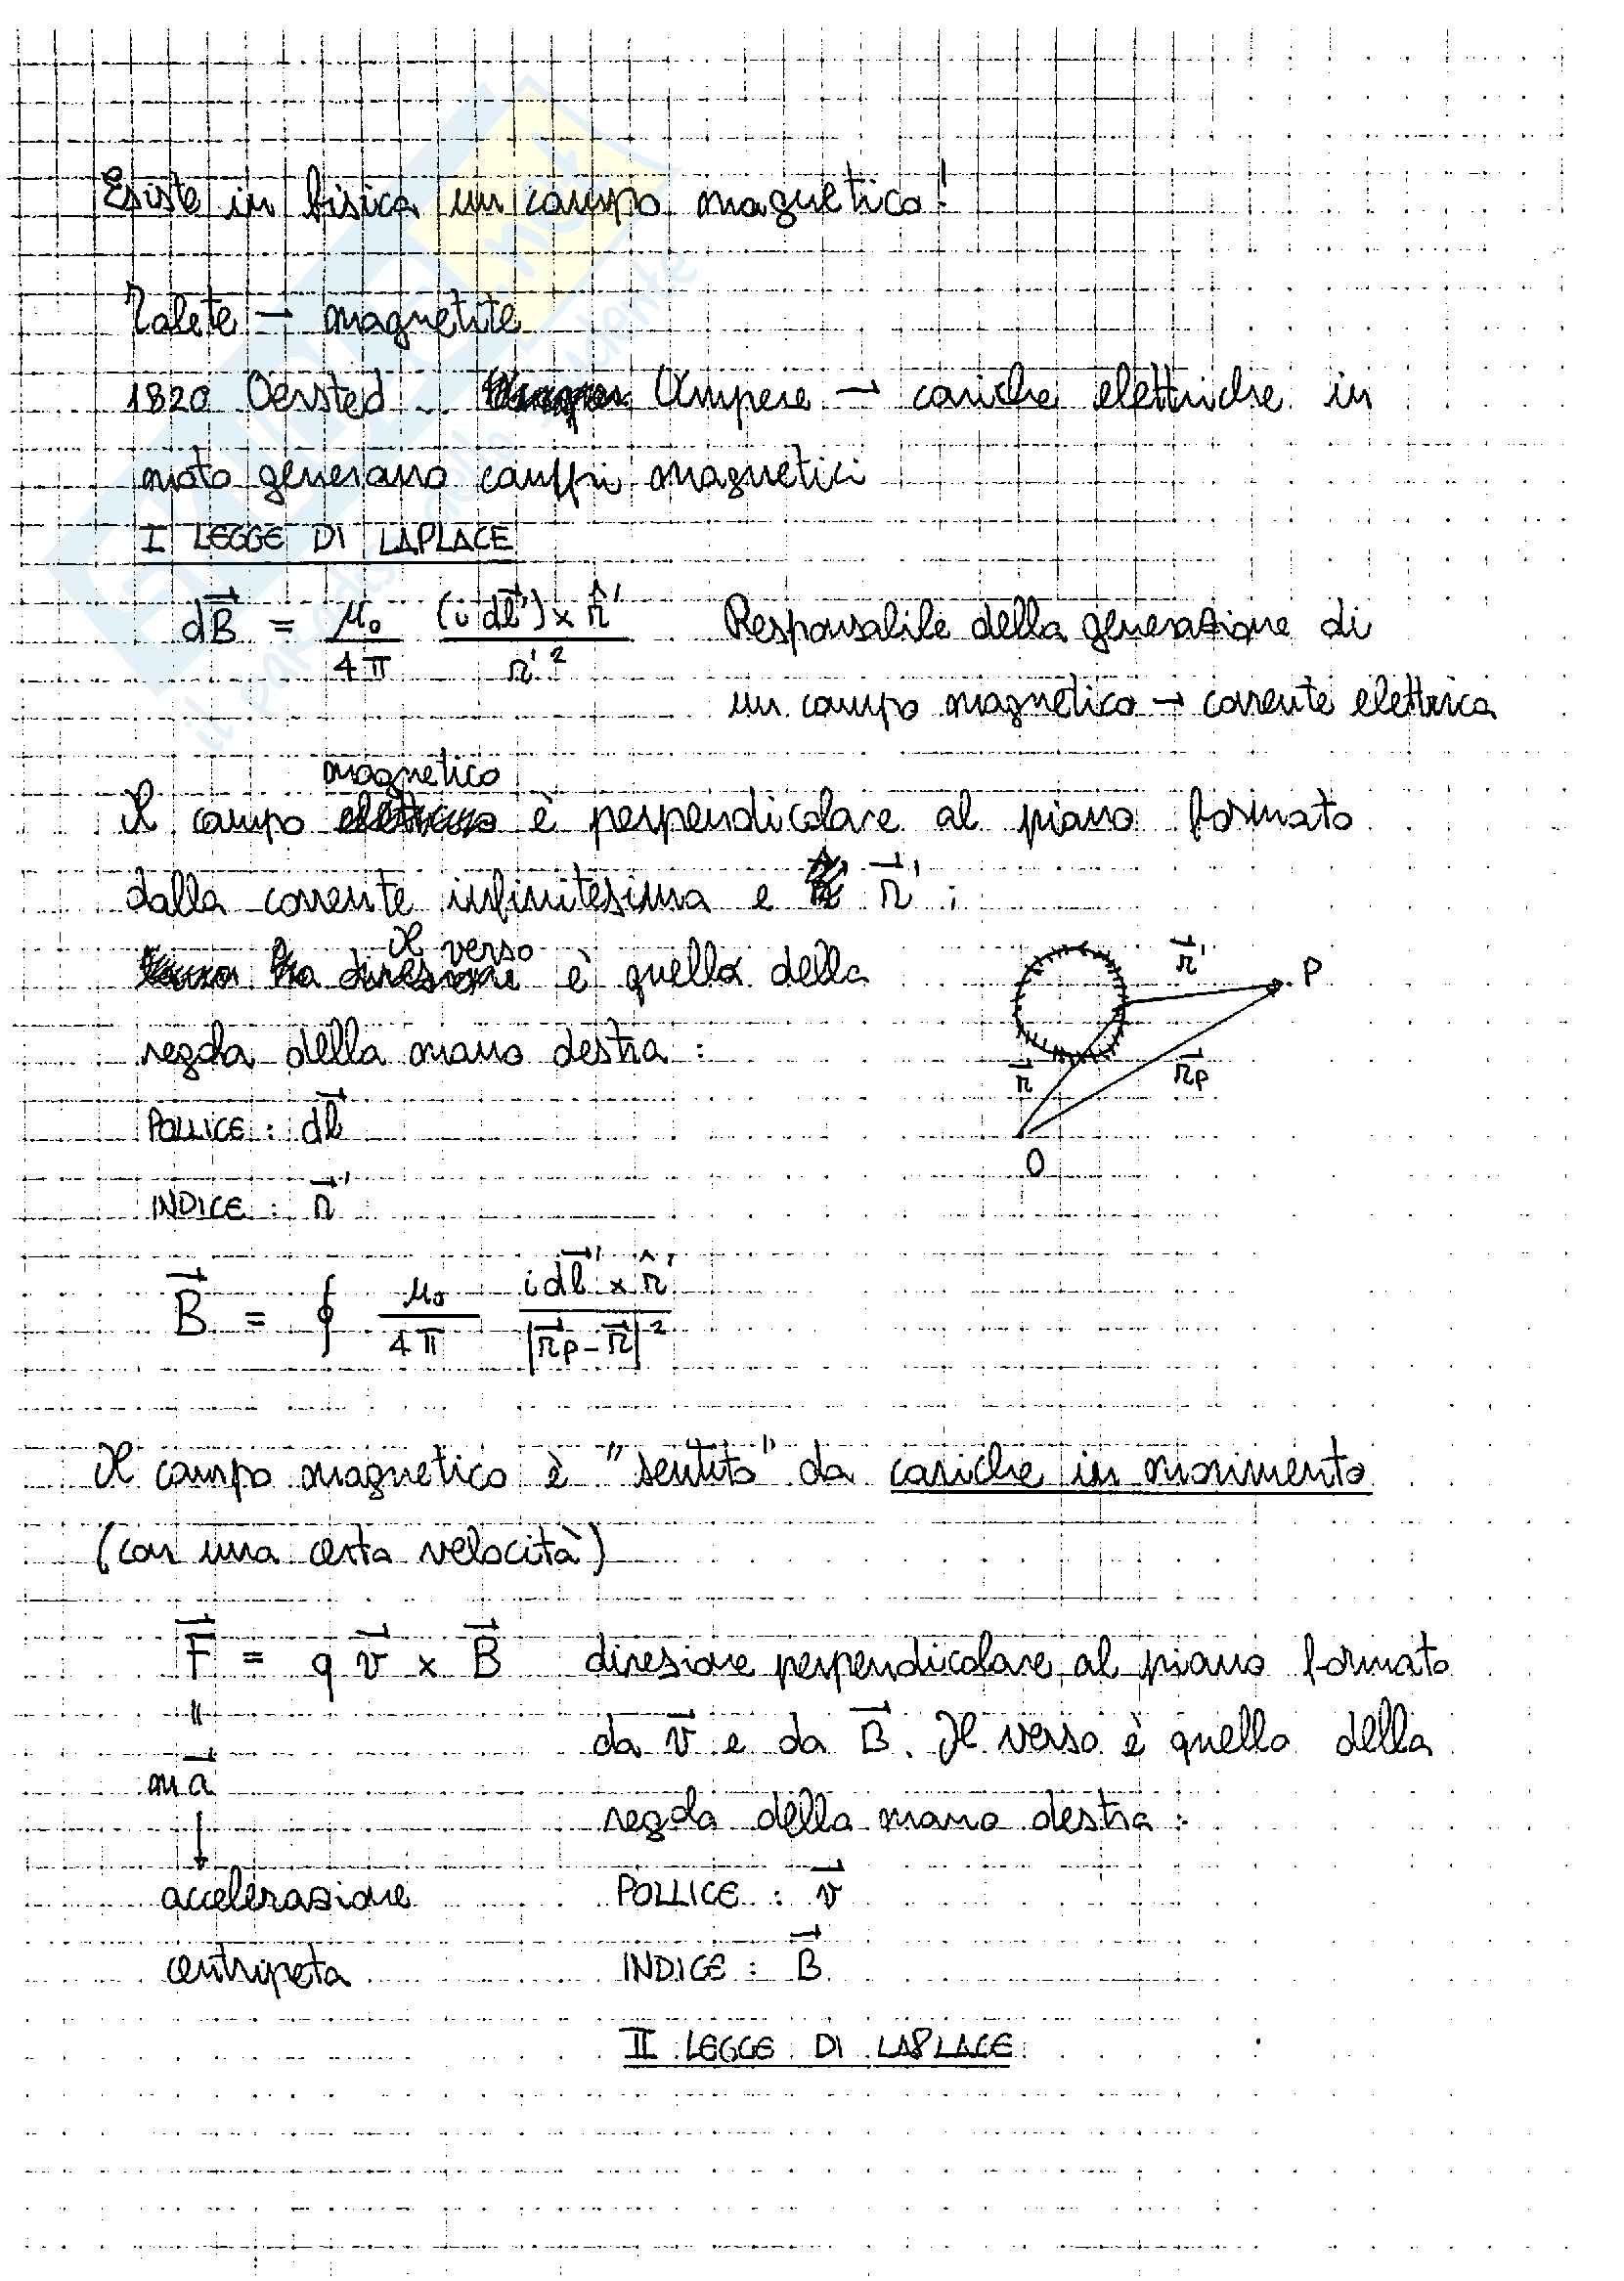 Esiste in fisica un campo magnetico!
Talete → magnetite
1820 Oersted .. Ampere → cariche elettriche in
moto generano campi magnetici
I LEGGE DI LAPLACE
dB⃗ = μ₀/4π (i dl⃗') × r̂' / r'² Responsabile della generazione di
un campo magnetico → corrente elettrica
magnetico
Il campo elettrico è perpendicolare al piano formato
dalla corrente infinitesima e r⃗' ;
Il verso
è quello della
regola della mano destra :
r⃗'
P
r⃗
r⃗p
O
POLLICE : dl⃗
INDICE : r⃗'
B⃗ = ∮ μ₀/4π i dl⃗' × r̂' / |r⃗p - r⃗|²
Il campo magnetico è "sentito" da cariche in movimento
(con una certa velocità)
F⃗ = q v⃗ × B⃗ direzione perpendicolare al piano formato
"
da v⃗ e da B⃗. Il verso è quello della
m a⃗
regola della mano destra :
↓
accelerazione POLLICE : v⃗
centripeta INDICE : B⃗
II LEGGE DI LAPLACE